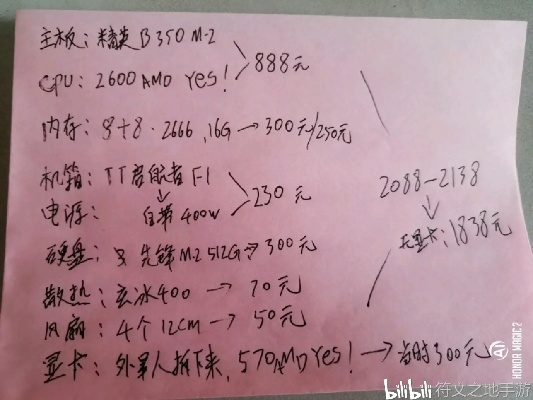 主板：精英B350 M-2
CPU：2600 AMD YES！
888元
内存：8+8·2666，16G→300元/250元
机箱：TT启航者F1
↓
电源：自带400W
230元
硬盘：先锋M.2 512G→300元
散热：玄冰400→70元
风扇：4个12cm→50元
显卡：外星人拆下来，570AMD YES！→当时300元
2088-2138
↓
无显卡：1838元
HONOR MAGIC2
bilibili 符文之地手游